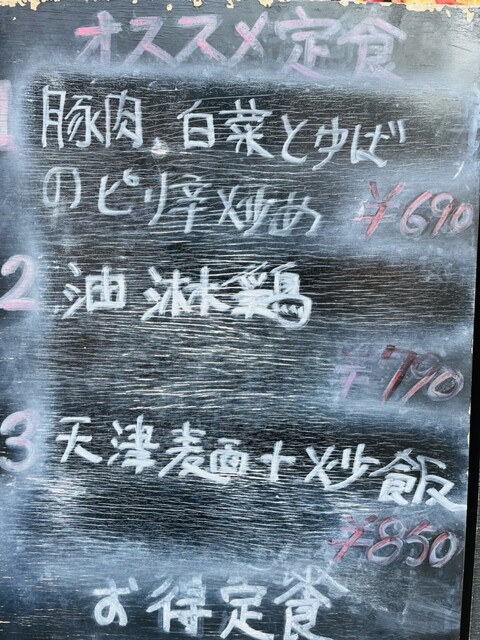 オススメ定食
1 豚肉、白菜とゆば
のピリ辛炒め ¥690
2 油淋鶏
¥790
3 天津麺+炒飯
¥850
お得定食